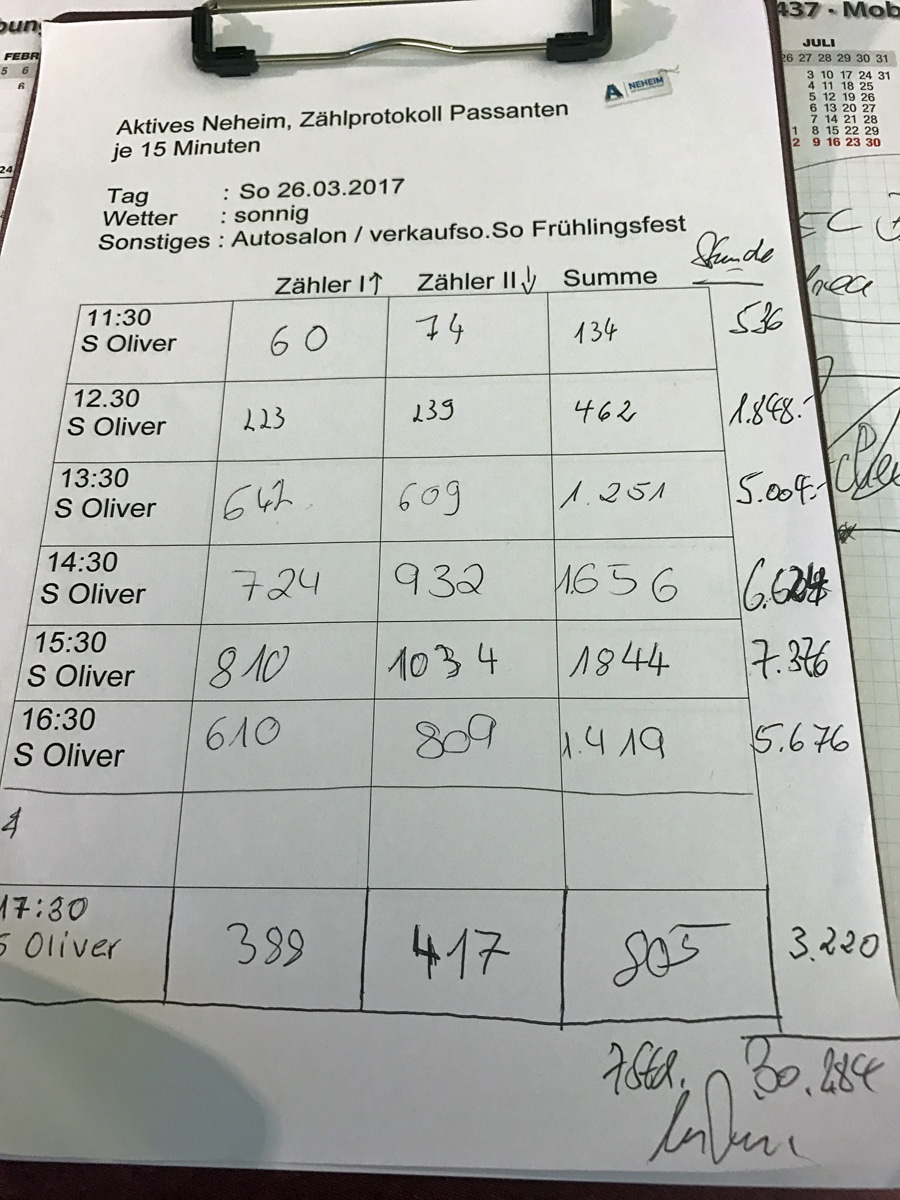 437 - Mob
FEBR
5 6
6
24
JULI
26 27 28 29 30 31
3 10 17 24 31
4 11 18 25
5 12 19 26
6 13 20 27
7 14 21 28
1 8 15 22 29
2 9 16 23 30
A NEHEIM
Aktives Neheim, Zählprotokoll Passanten
je 15 Minuten
Tag : So 26.03.2017
Wetter : sonnig
Sonstiges : Autosalon / verkaufso.So Frühlingsfest
Zähler I↑ Zähler II↓ Summe Stunde
11:30
S Oliver 60 74 134 536
12.30
S Oliver 223 239 462 1.848.-
13:30
S Oliver 642 609 1.251 5.004.-
14:30
S Oliver 724 932 1656 6.624
15:30
S Oliver 810 1034 1844 7.376
16:30
S Oliver 610 809 1.419 5.676
17:30
S Oliver 388 417 805 3.220
7 Std. 30.284